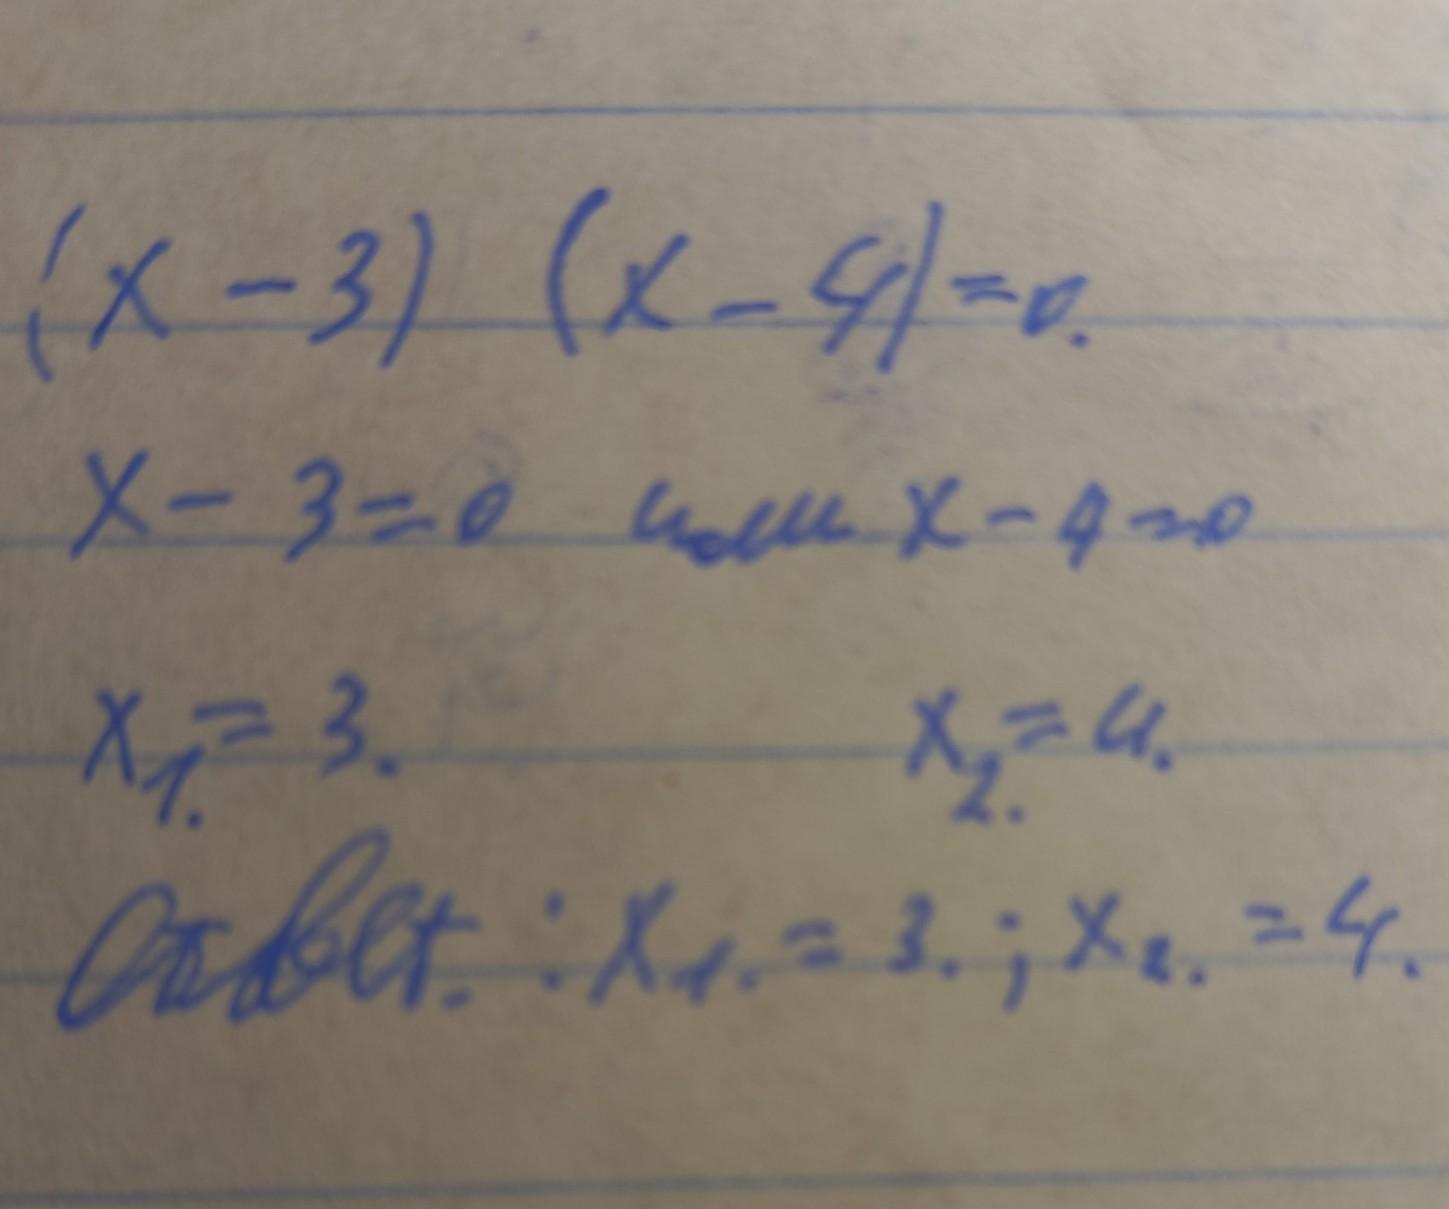 (x - 3) (x - 4) = 0.
x - 3 = 0 или x - 4 = 0
x₁. = 3. x₂. = 4.
Ответ. : x₁. = 3. ; x₂. = 4.